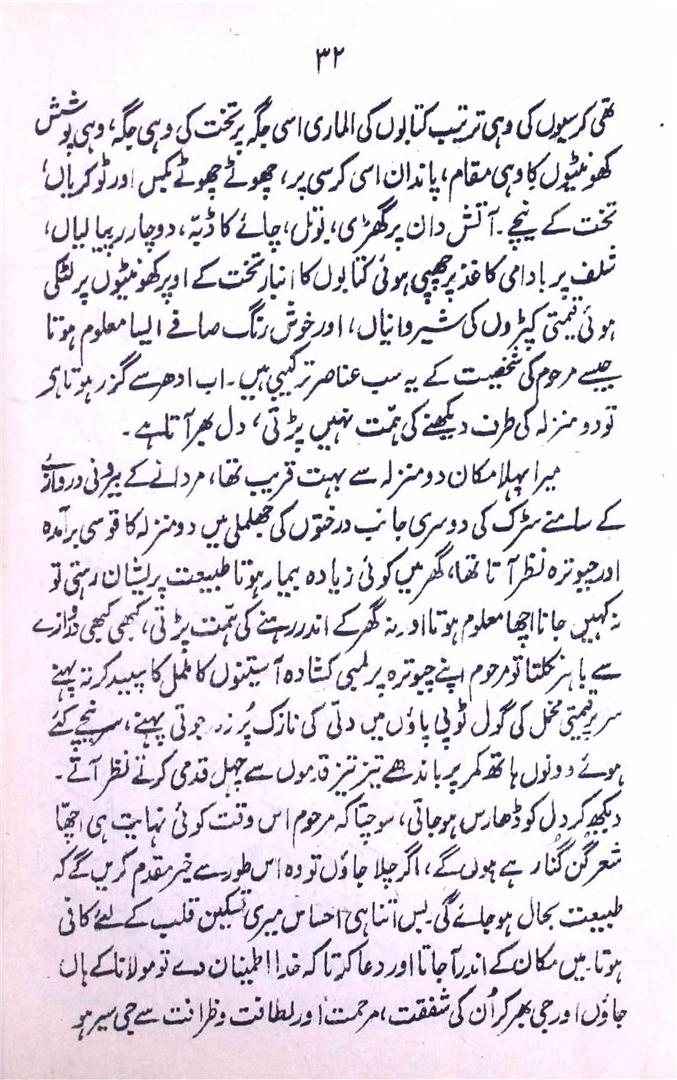 ۳۲
تھی کرسیوں کی وہی ترتیب کتابوں کی الماری اسی جگہ پر تخت کی وہی جگہ، وہی پوشش
کھونٹیوں کا وہی مقام، پاندان اسی کرسی پر، چھوٹے چھوٹے بکس اور ٹوکریاں،
تخت کے نیچے۔ آتش دان پر گھڑی، بوتل، چائے کا ڈبہ، دو چار پیالیاں،
شلف پر بادامی کاغذ پر چھپی ہوئی کتابوں کا انبار تخت کے اوپر کھونٹیوں پر لٹکی
ہوئی قیمتی کپڑوں کی شیروانیاں، اور خوش رنگ صافے ایسا معلوم ہوتا
جیسے مرحوم کی شخصیت کے یہ سب عناصر ترکیبی ہیں۔ اب ادھر سے گزر ہوتا ہی
تو دو منزلہ کی طرف دیکھنے کی ہمّت نہیں پڑتی، دل بھر آتا ہے۔
میرا پہلا مکان دو منزلہ سے بہت قریب تھا، مردانے کے بیرونی دروازے
کے سامنے سڑک کی دوسری جانب درختوں کی جھلملی میں دو منزلہ کا قوسی برآمدہ
اور چبوترہ نظر آتا تھا، گھر میں کوئی زیادہ بیمار ہوتا طبیعت پریشان رہتی تو
نہ کہیں جانا اچھا معلوم ہوتا اور نہ گھر کے اندر رہنے کی ہمّت پڑتی، کبھی کبھی دروازے
سے باہر نکلتا تو مرحوم اپنے چبوترہ پر لمبی کشادہ آستینوں کا ململ کا سپید کرتہ پہنے
سر پر قیمتی مخمل کی گول ٹوپی پاؤں میں دلّی کی نازک پُر زر جوتی پہنے، سر نیچے کئے
ہوئے دونوں ہاتھ کمر پر باندھے تیز تیز قدموں سے چہل قدمی کرتے نظر آتے۔
دیکھ کر دل کو ڈھارس ہو جاتی، سوچتا کہ مرحوم اس وقت کوئی نہایت ہی اچھّا
شعر گُن گُنا رہے ہوں گے، اگر چلا جاؤں تو وہ اس طور سے خیر مقدم کریں گے کہ
طبیعت بحال ہو جائے گی۔ بس اتنا ہی احساس میری تسکین قلب کے لئے کافی
ہوتا۔ میں مکان کے اندر آ جاتا اور دعا کرتا کہ خدا اطمینان دے تو مولانا کے ہاں
جاؤں اور جی بھر کر اُن کی شفقت، مرحمت اور لطافت و ظرافت سے جی سیر ہو